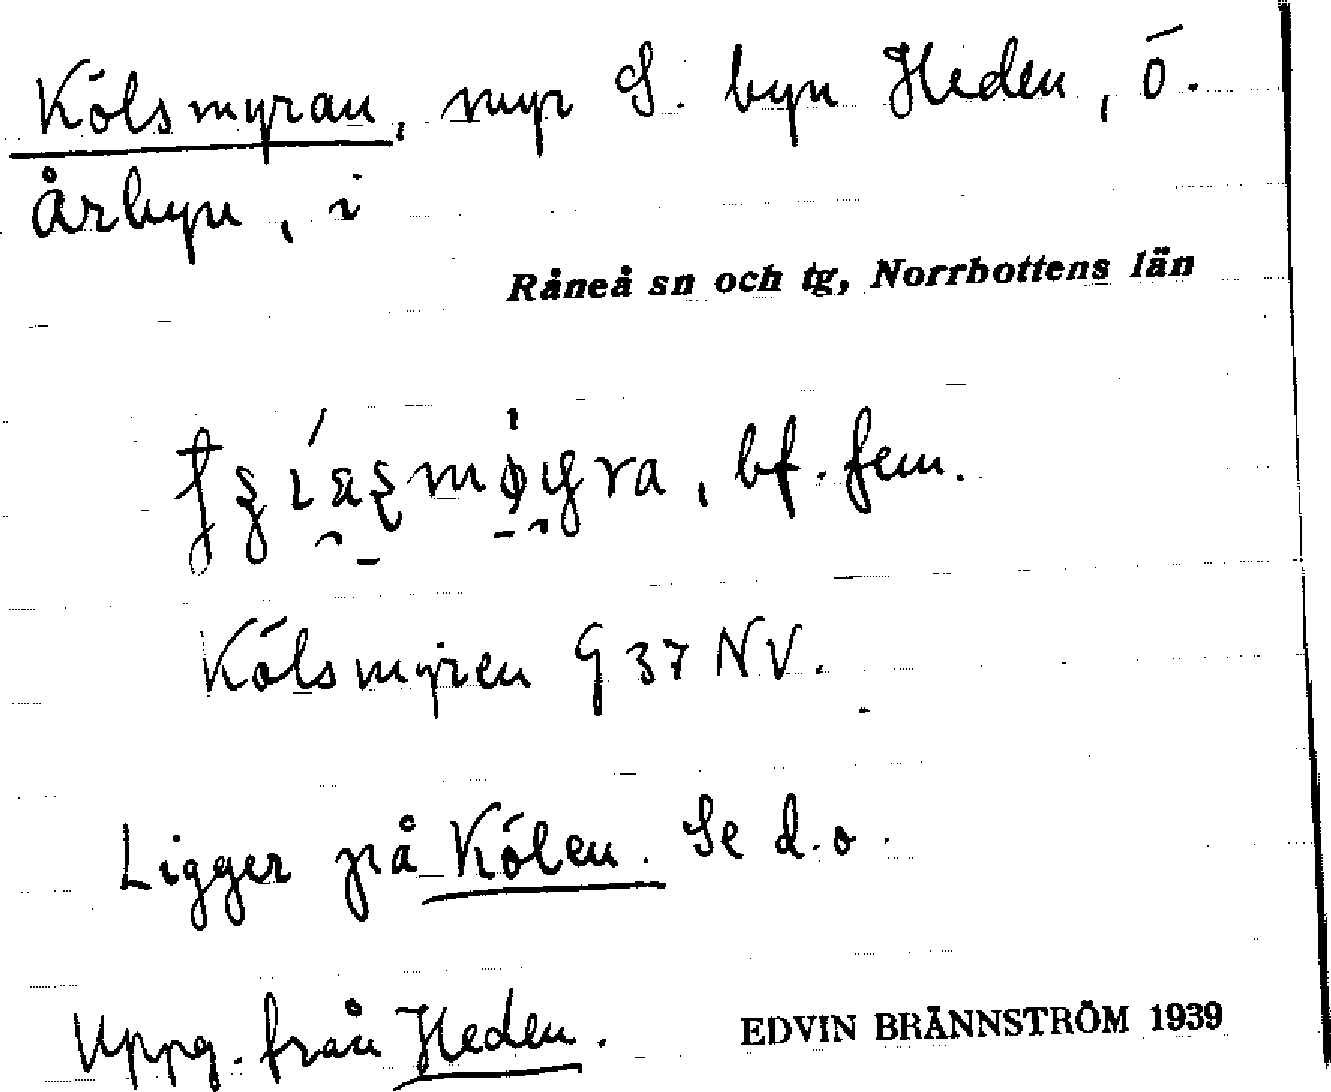 Kölsmyran, myr S. byn Heden, Ö.
Årbyn, i
Råneå sn och tg, Norrbottens län
bf. fem.
Kölsmyren G 37 NV.
Ligger på Kölen. Se d. o.
Uppg. från Heden.
EDVIN BRÄNNSTRÖM 1939